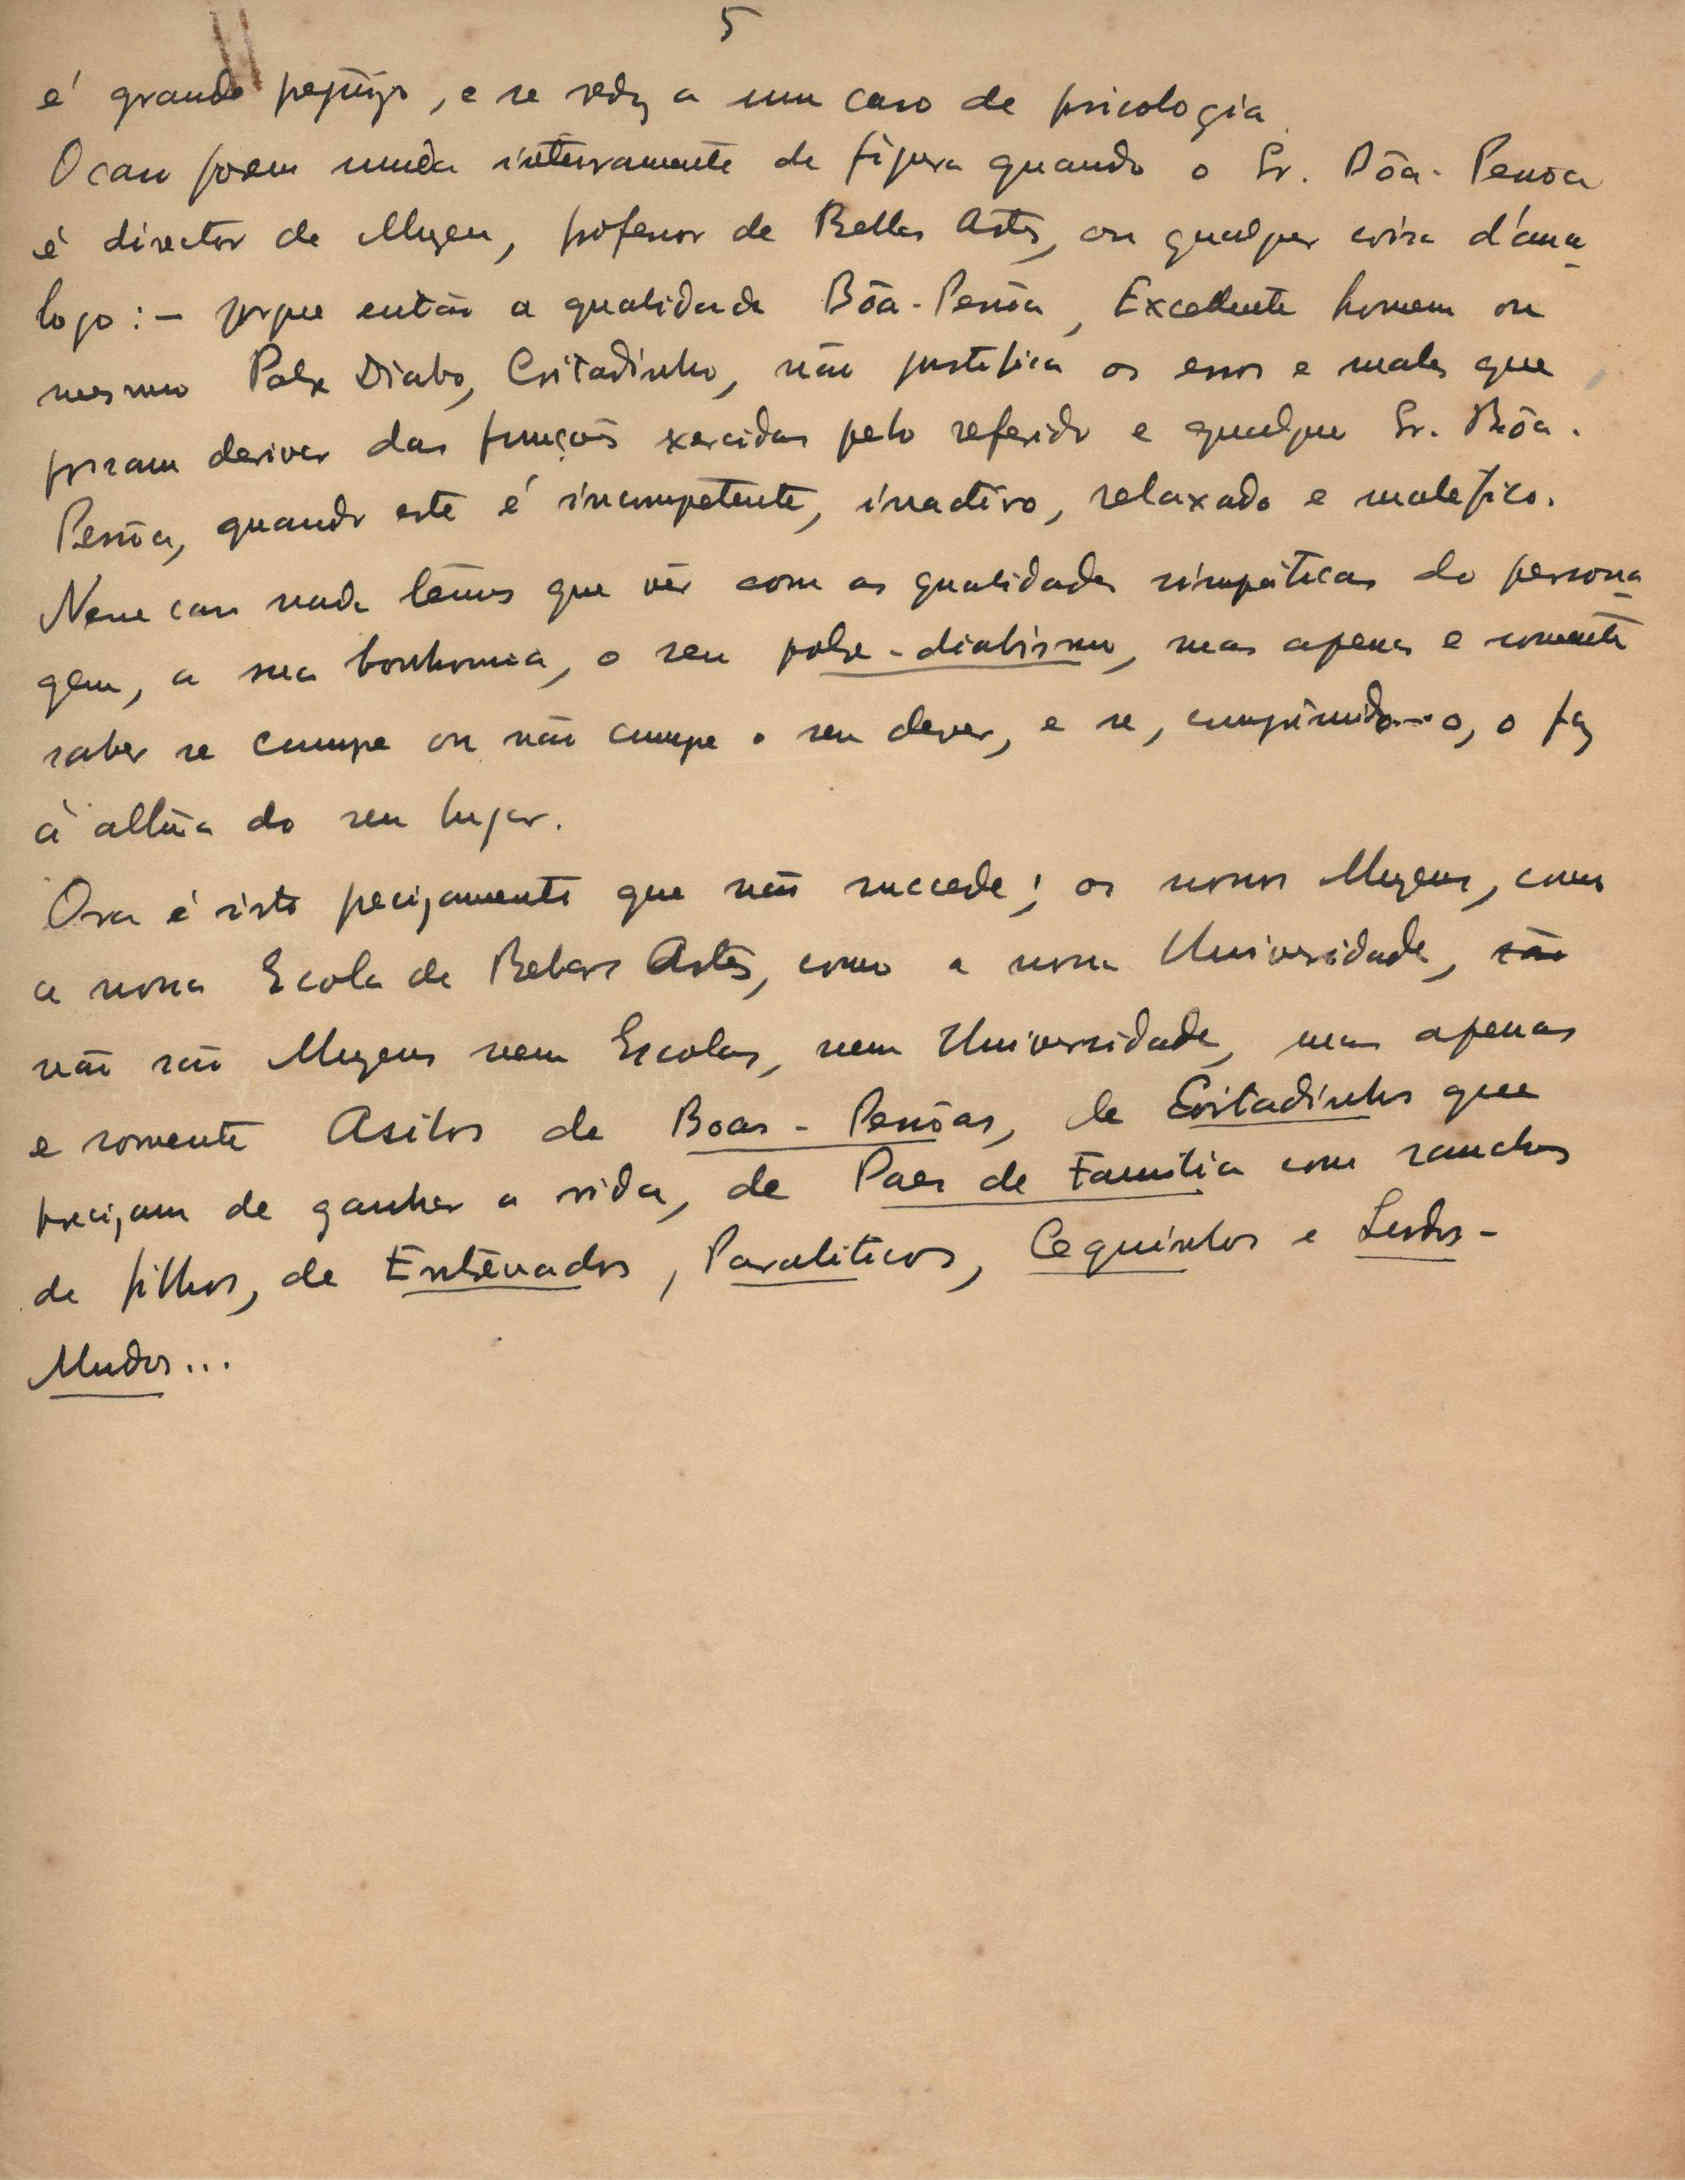 5
é grande prejuizo, e se reduz a um caso de psicologia.
O caso porem muda inteiramente de figura quando o Sr. Bôa-Pessôa
é director de Muzeu, professor de Bellas Artes, ou qualquer coisa d'ana-
logo:- porque então a qualidade Bôa-Pessôa, Excellente homem ou
mesmo Pobre Diabo, Coitadinho, não justifica os erros e males que
possam derivar das funções exercidas pelo referido e qualquer Sr. Bôa-
Pessôa, quando este é incompetente, inactivo, relaxado e malefico.
Nesse caso nada têmos que vêr com as qualidades simpáticas do persona-
gem, a sua bonhomia, o seu pobre-diabismo, mas apenas e somente
saber se cumpre ou não cumpre o seu dever, e se, cumprindo-o, o faz
á altura do seu lugar.
Ora é isto precizamente que não succede; os nossos Muzeus, como
a nossa Escola de Belas Artes, como a nossa Universidade, são
não são Muzeus nem Escolas, nem Universidade, mas apenas
e somente Asilos de Boas-Pessôas, de Coitadinhos que
precizam de ganhar a vida, de Paes de Familia com ranchos
de filhos, de Entrévados, Paraliticos, Ceguinhos e Surdos-
Mudos...